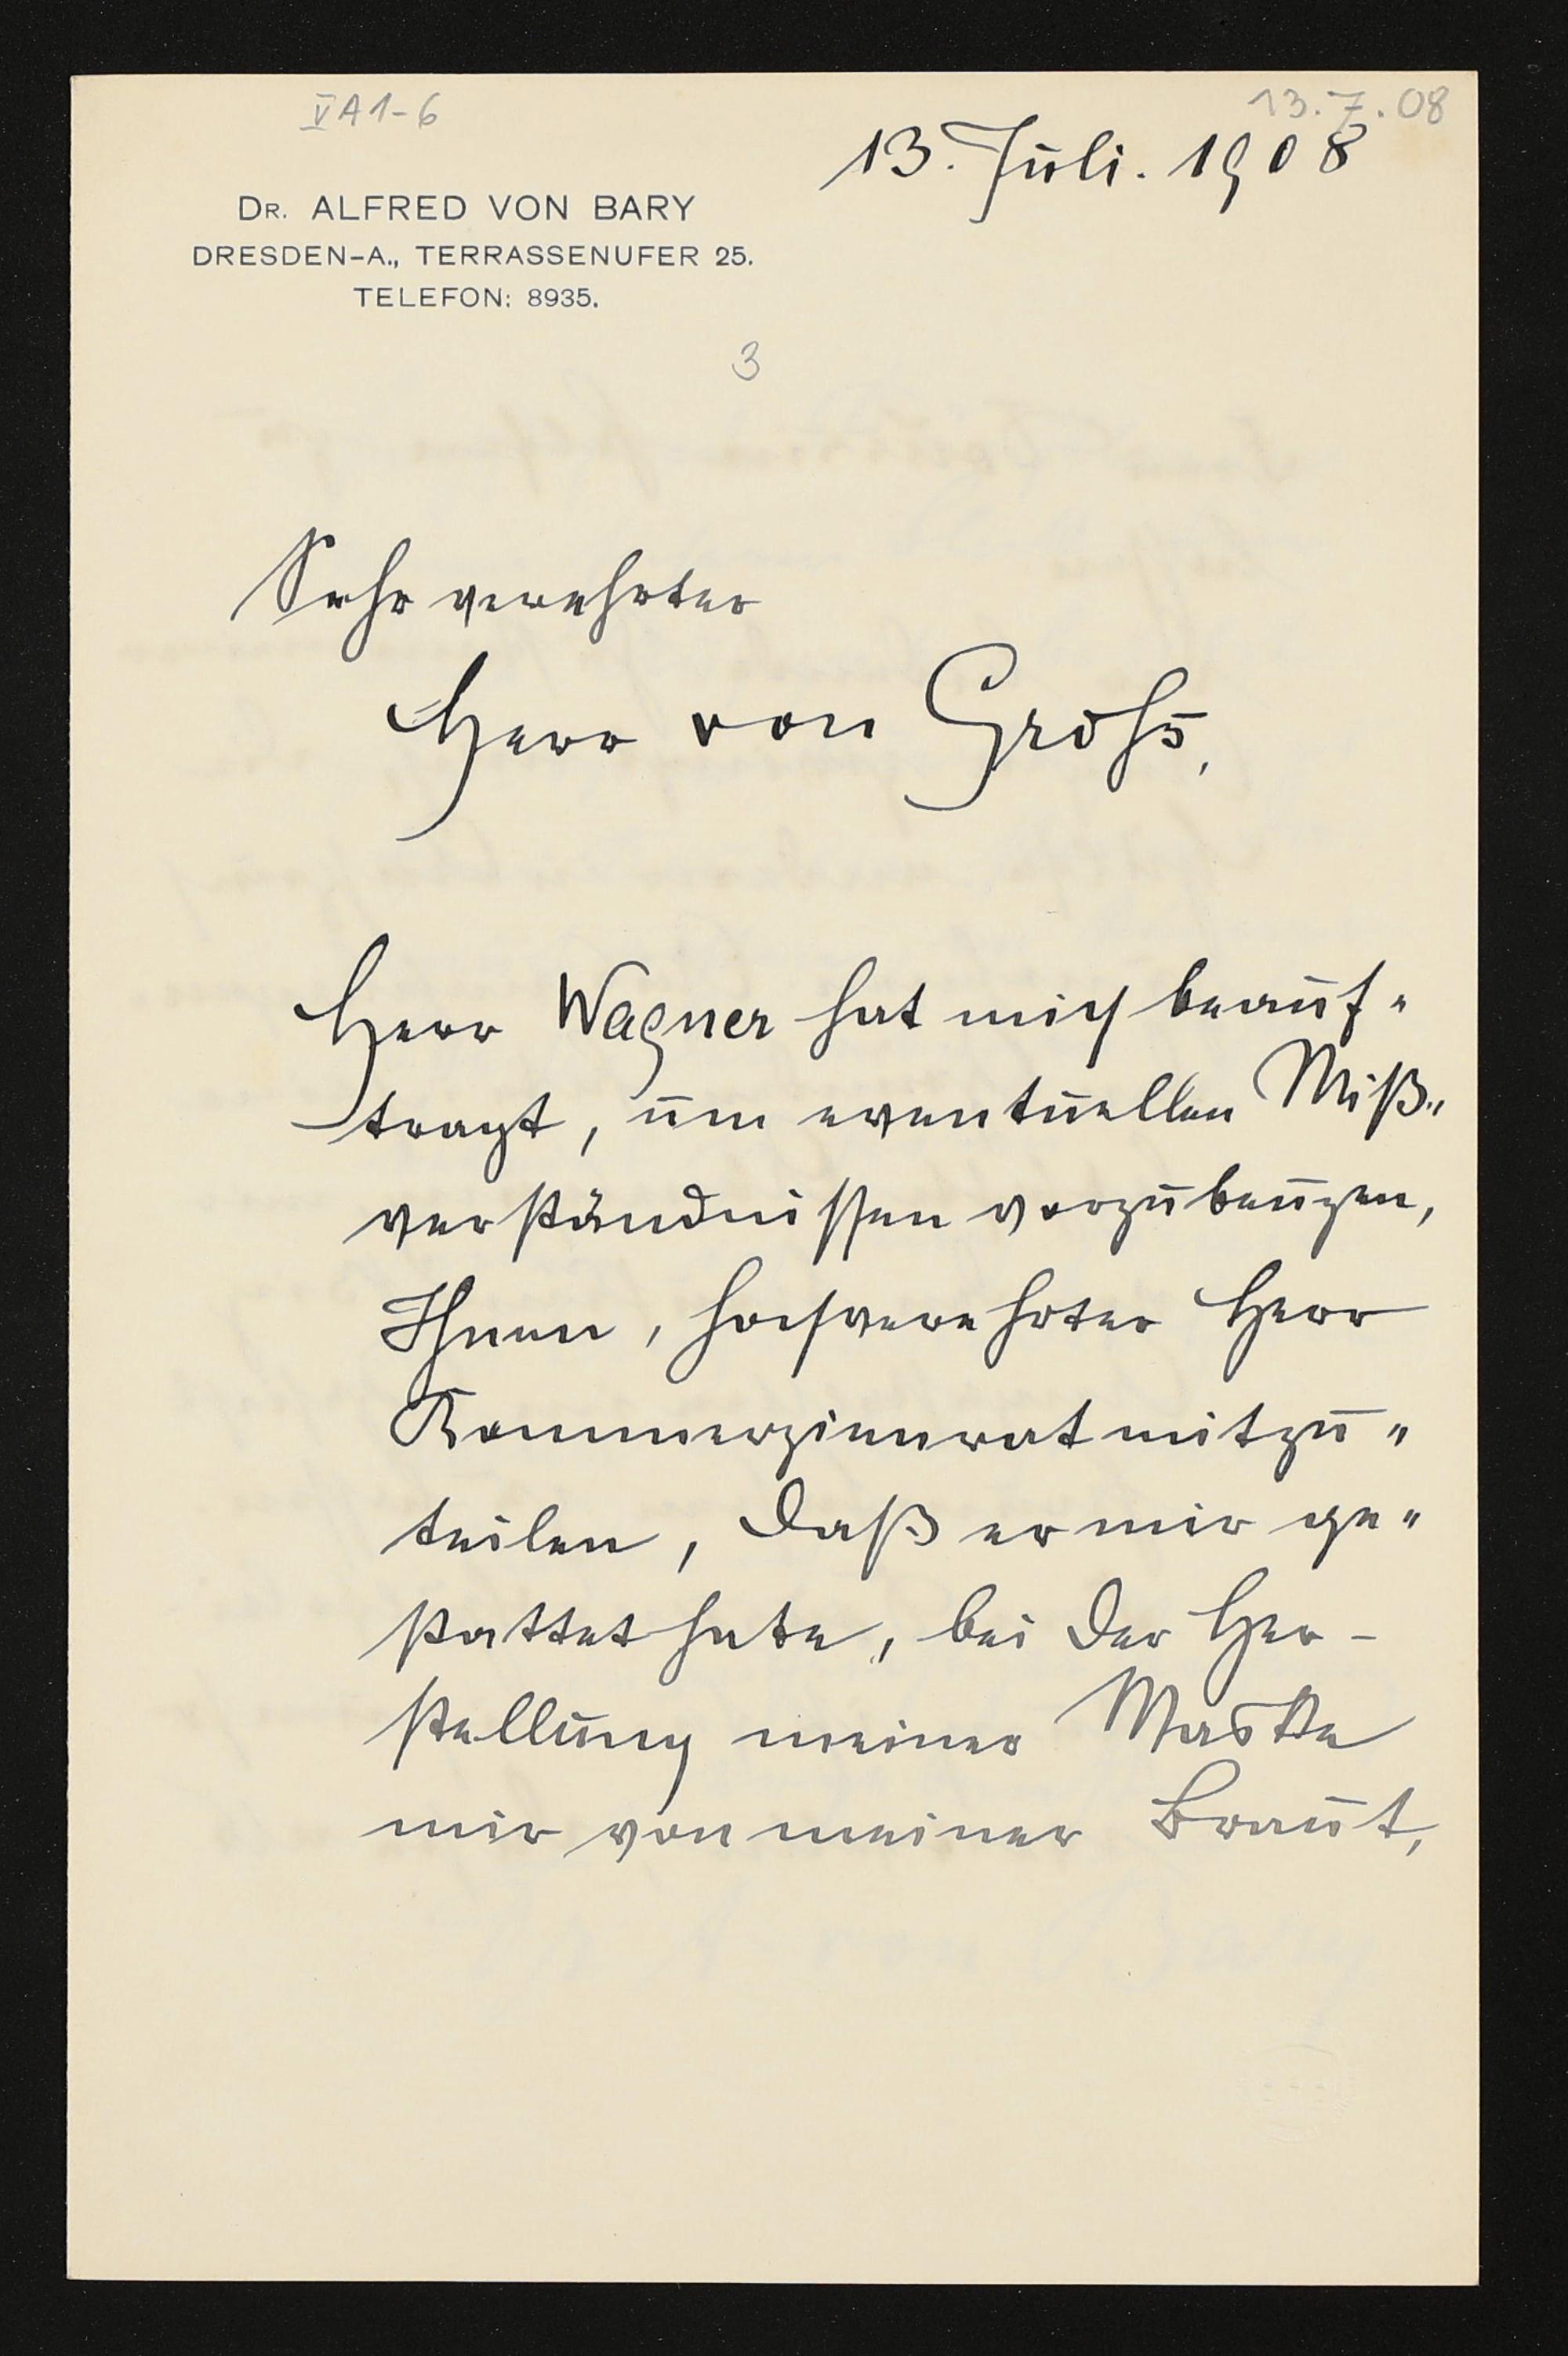 VA1-6
13.7.08
13. Juli. 1908
DR. ALFRED VON BARY
DRESDEN-A., TERRASSENUFER 25.
TELEFON: 8935.
3
Sehr verehrter
Herr von Groß,
Herr Wagner hat mich beauf-
tragt, um eventuellen Miß-
verständnissen vorzubeugen,
Ihnen, hochverehrter Herr
Kommerzienrat mitzu-
teilen, daß er mir ge-
stattet habe, bei der Her-
stellung meiner Maske
mir von meiner Braut,